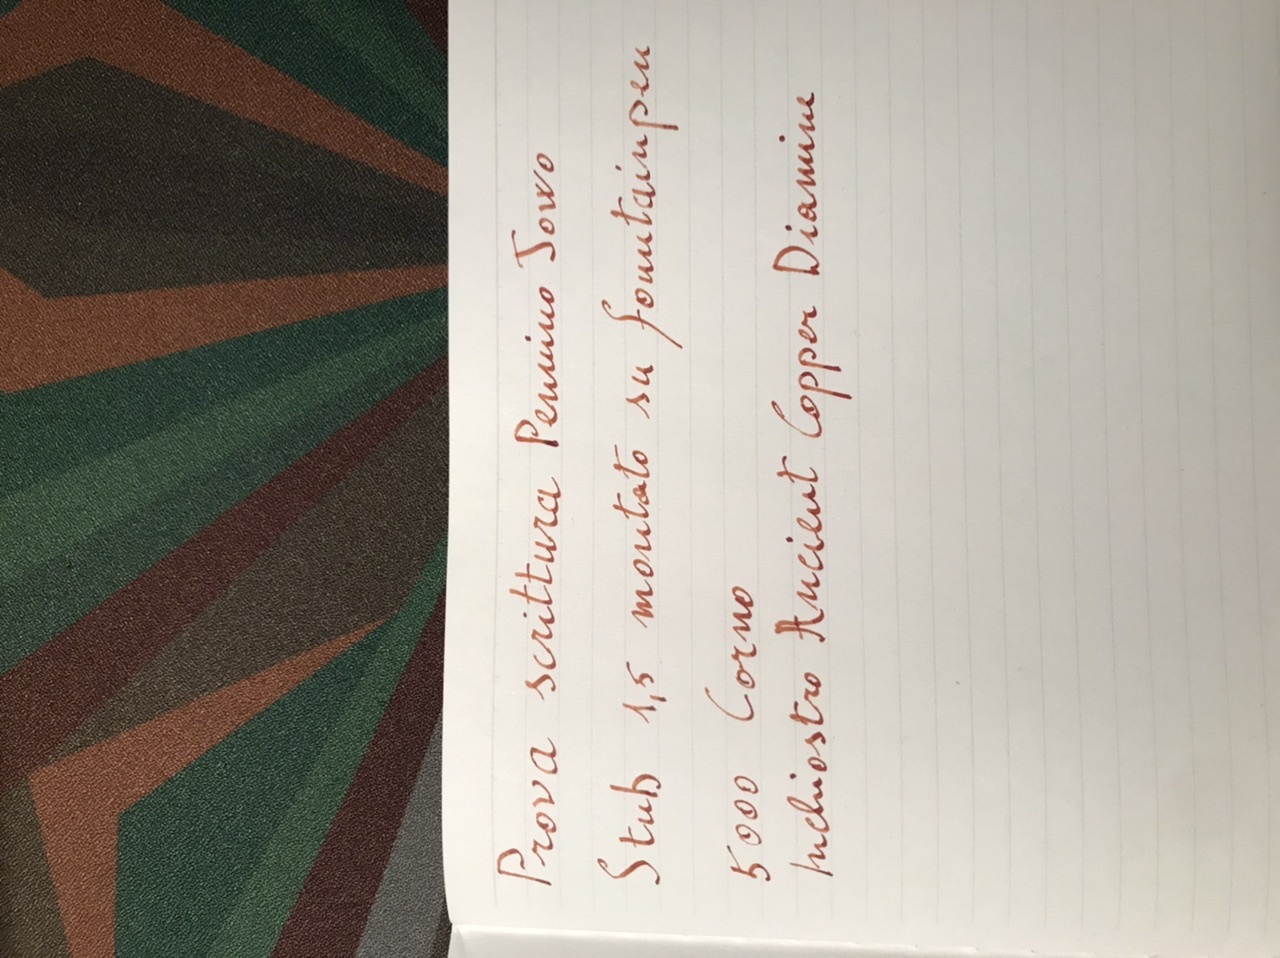 Prova scrittura Pennino Jowo
Stub 1,5 montato su fountainpen
5000 Corno
Inchiostro Ancient Copper Diamine